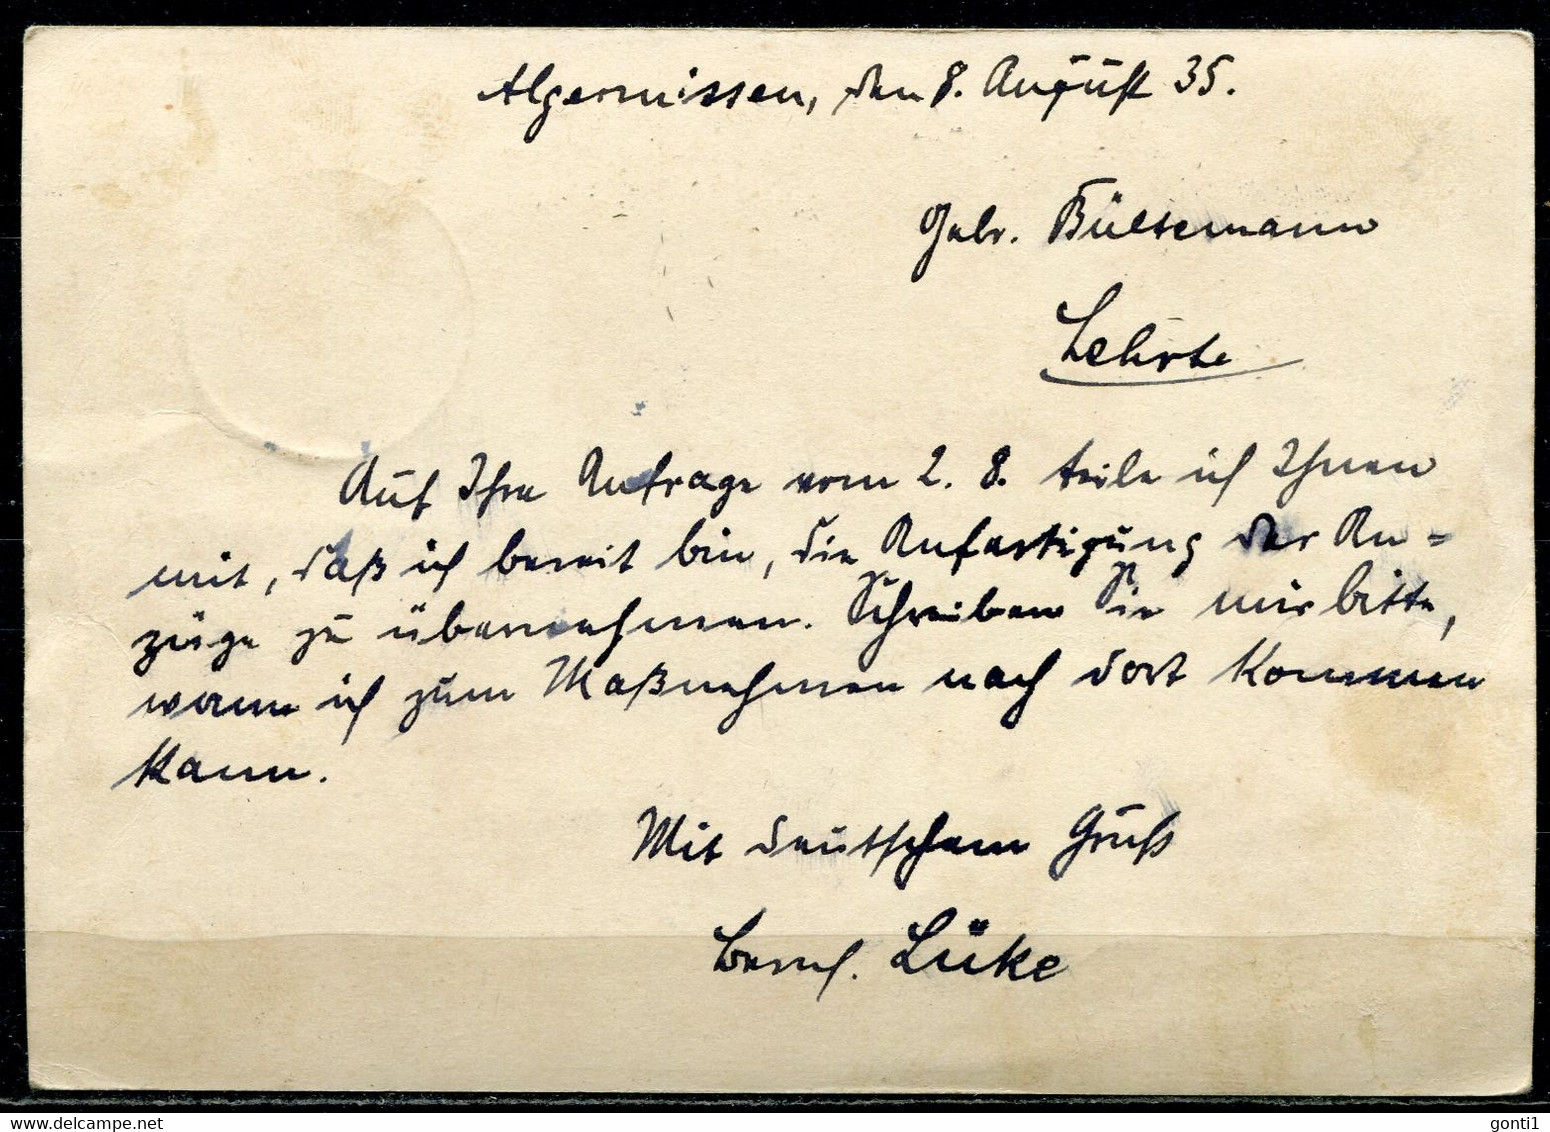 Algermissen, den 8. August 35.
Gebr. Bültemann
Lehrte
Auf Ihre Anfrage vom 2. 8. teile ich Ihnen
mit, daß ich bereit bin, die Anfertigung der An=
züge zu übernehmen. Schreiben Sie mir bitte,
wann ich zum Maßnehmen nach dort kommen
kann.
Mit deutschem Gruß
Bernh. Lüke
www.delcampe.net
gonti1